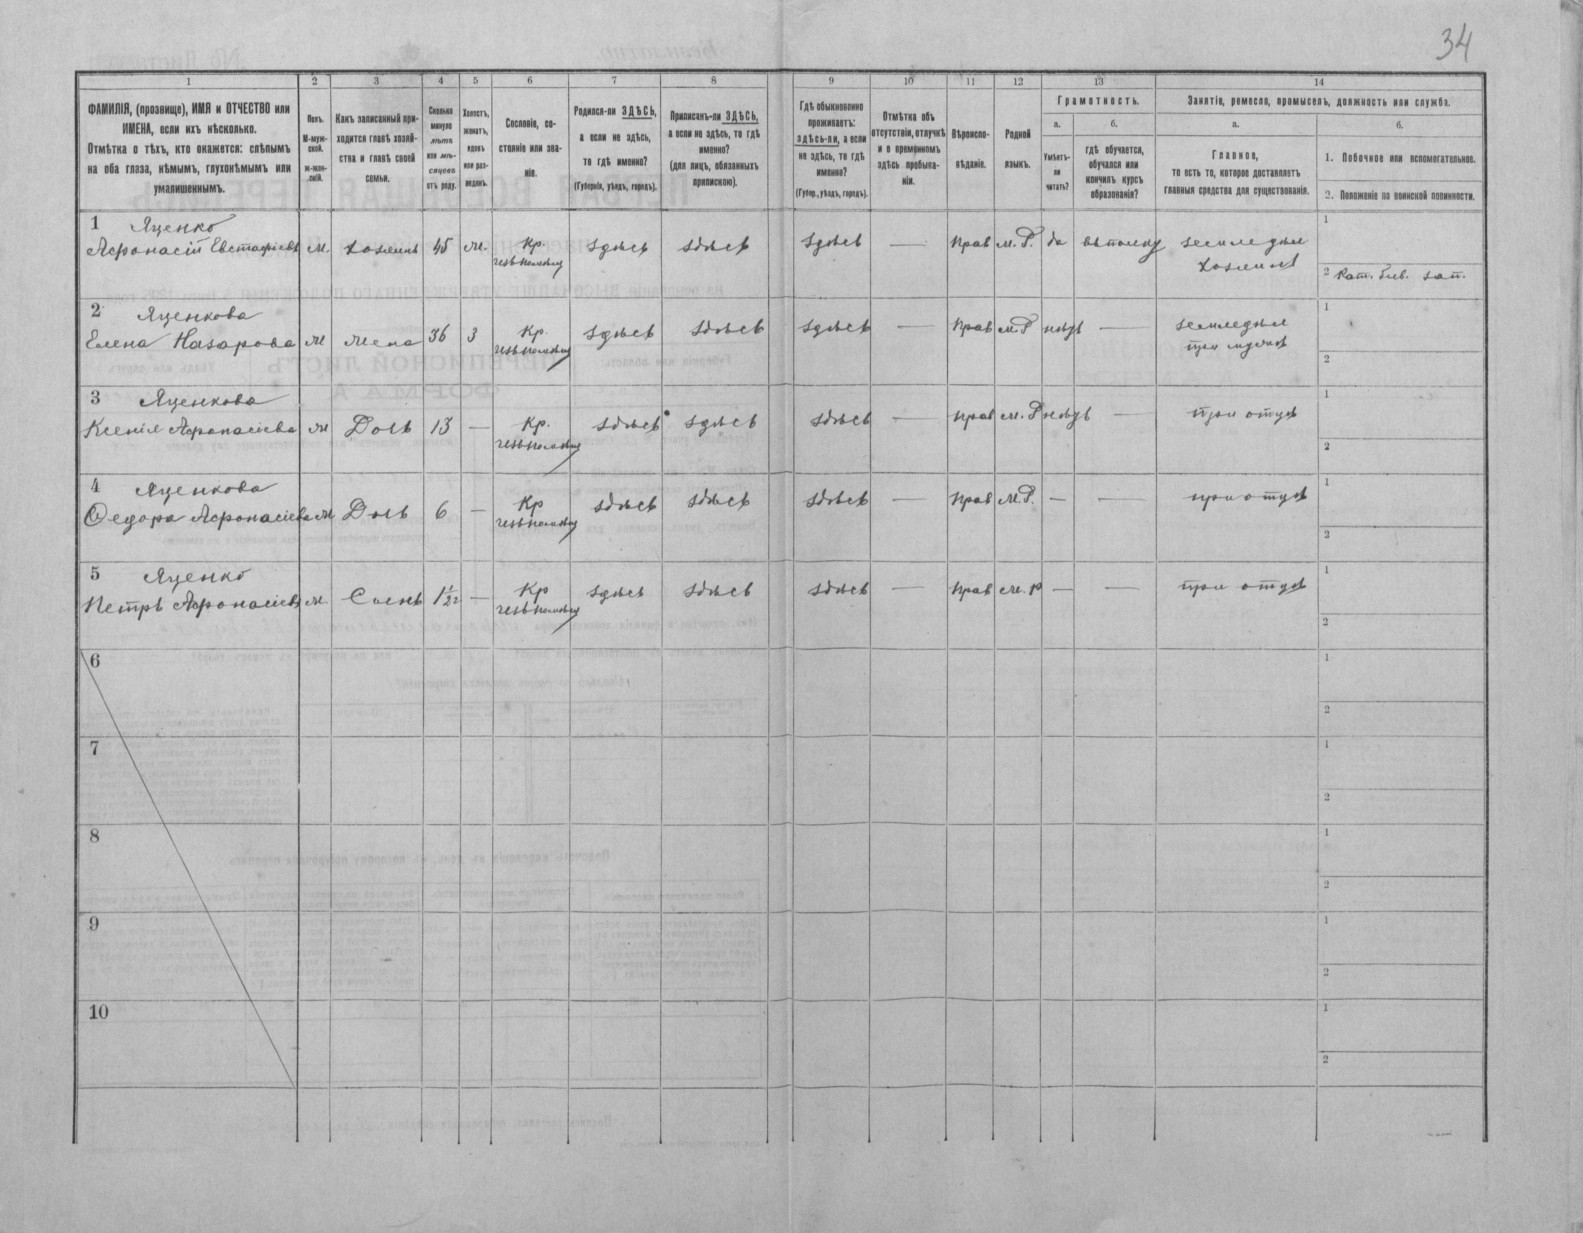 34
1 2 3 4 5 6 7 8 9 10 11 12 13 14
ФАМИЛІЯ, (прозвище), ИМЯ и ОТЧЕСТВО или
ИМЕНА, если ихъ нѣсколько.
Отмѣтка о тѣхъ, кто окажется: слѣпымъ
на оба глаза, нѣмымъ, глухонѣмымъ или
умалишеннымъ.
Полъ.
М-муж-
ской.
ж-жен-
скій.
Какъ записанный при-
ходится главѣ хозяй-
ства и главѣ своей
семьи.
Сколько
минуло
лѣтъ
или мѣ-
сяцевъ
отъ роду.
Холостъ,
женатъ,
вдовъ
или раз-
веденъ.
Сословіе, со-
стояніе или зва-
ніе.
Родился-ли ЗДѢСЬ,
а если не здѣсь,
то гдѣ именно?
(Губернія, уѣздъ, городъ).
Приписанъ-ли ЗДѢСЬ,
а если не здѣсь, то гдѣ
именно?
(для лицъ, обязанныхъ
припискою).
Гдѣ обыкновенно
проживаетъ:
здѣсь-ли, а если
не здѣсь, то гдѣ
именно?
(Губер., уѣздъ, городъ).
Отмѣтка объ
отсутствіи, отлучкѣ
и о временномъ
здѣсь пребыва-
ніи.
Вѣроиспо-
вѣданіе.
Родной
языкъ.
Грамотность.
а.
Умѣетъ-
ли
читать?
б.
гдѣ обучается,
обучался или
кончилъ курсъ
образованія?
Занятіе, ремесло, промыселъ, должность или служба.
а.
Главное,
то есть то, которое доставляетъ
главныя средства для существованія.
б.
1. Побочное или вспомогательное.
2. Положеніе по воинской повинности.
1 Яценко
Афонасій Евстафіевъ м. хозяинъ 45 м. Кр. здѣсь здѣсь здѣсь — Прав м.Р. да въ полку земледѣл
хозяинъ
1
2 Рат. зап.
2 Яценкова
Елена Назарова м жена 36 з Кр. здѣсь здѣсь здѣсь — Прав м.Р нѣтъ — земледѣл
при мужѣ
1
2
3 Яценкова
Ксенія Афонасіева м Дочь 13 — Кр. здѣсь здѣсь здѣсь — Прав м.Р нѣтъ — при отцѣ
1
2
4 Яценкова
Федора Афонасіева м Дочь 6 — Кр здѣсь здѣсь здѣсь — Прав м.Р. — — при отцѣ
1
2
5 Яценко
Петръ Афонасіевъ м. Сынъ 1½ — Кр здѣсь здѣсь здѣсь — Прав м.Р — — при отцѣ
1
2
6
1
2
7
1
2
8
1
2
9
1
2
10
1
2